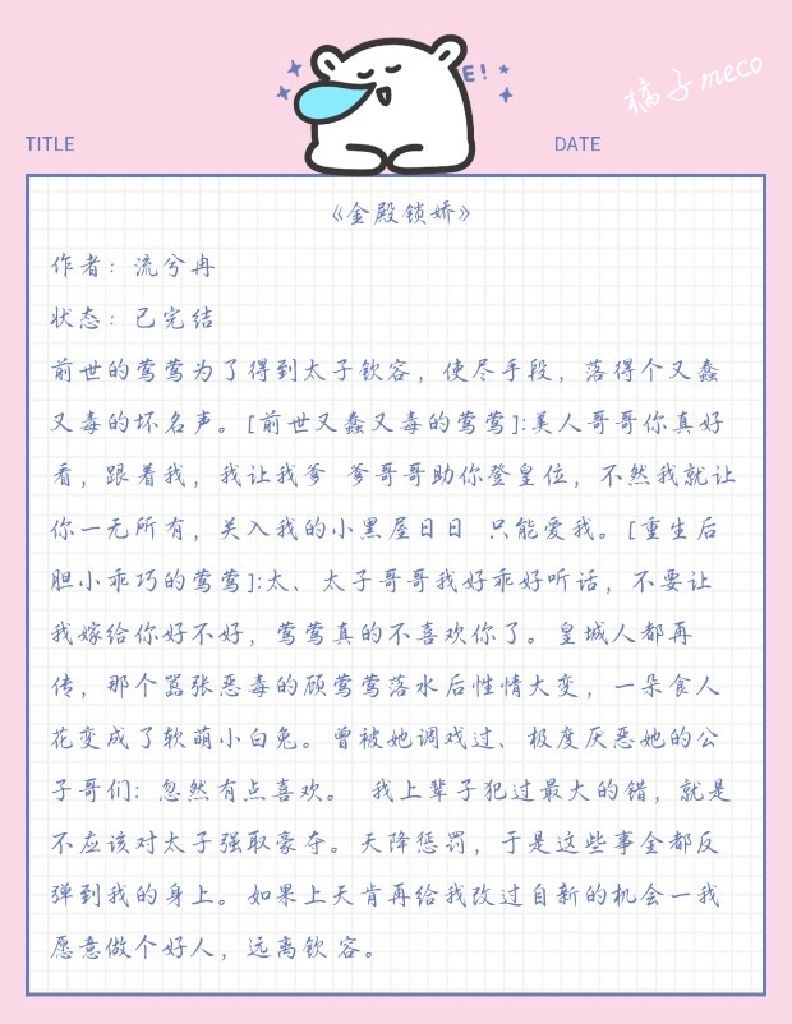 E!
橘子meco
TITLE
DATE
《金殿锁娇》
作者：流兮冉
状态：已完结
前世的莺莺为了得到太子钦容，使尽手段，落得个又蠢
又毒的坏名声。[前世又蠢又毒的莺莺]:美人哥哥你真好
看，跟着我，我让我爹 爹哥哥助你登皇位，不然我就让
你一无所有，关入我的小黑屋日日 只能爱我。[重生后
胆小乖巧的莺莺]:太、太子哥哥我好乖好听话，不要让
我嫁给你好不好，莺莺真的不喜欢你了。皇城人都再
传，那个嚣张恶毒的顾莺莺落水后性情大变，一朵食人
花变成了软萌小白兔。曾被她调戏过、极度厌恶她的公
子哥们：忽然有点喜欢。 我上辈子犯过最大的错，就是
不应该对太子强取豪夺。天降惩罚，于是这些事全都反
弹到我的身上。如果上天肯再给我改过自新的机会一我
愿意做个好人，远离钦容。